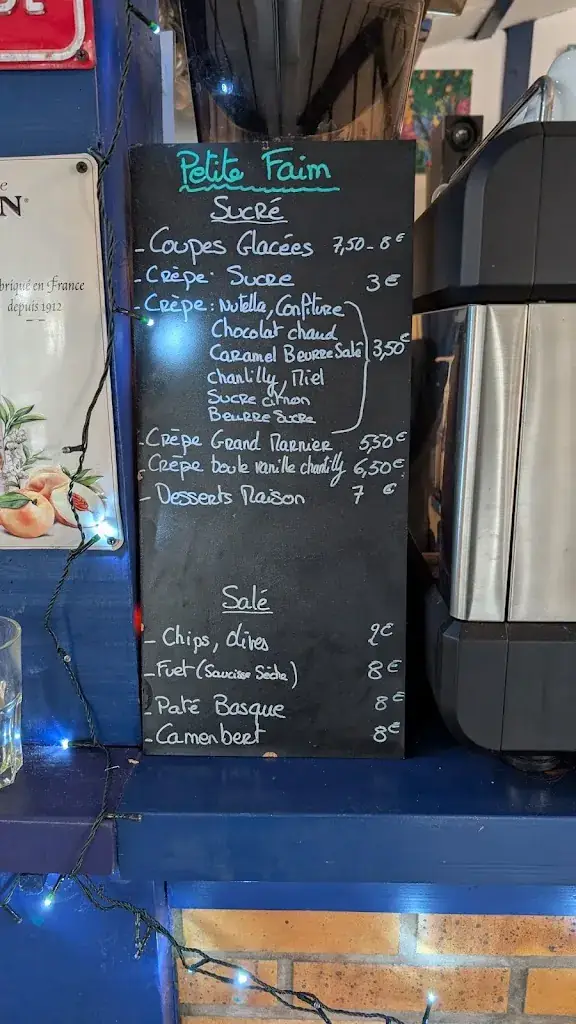 N
briqué en France
depuis 1912
Petite Faim
Sucré
- Coupes Glacées 7,50 - 8€
- Crèpe: Sucre 3€
- Crèpe: Nutella, Confiture
Chocolat chaud
Caramel Beurre Salé 3,50€
chantilly, Miel
Sucre citron
Beurre Sucre
- Crèpe Grand Marnier 5,50€
- Crèpe boule vanille chantilly 6,50€
- Desserts Maison 7 €
Salé
- Chips, olives 2€
- Fuet (Saucisse Sèche) 8€
- Paté Basque 8€
- Camembert 8€